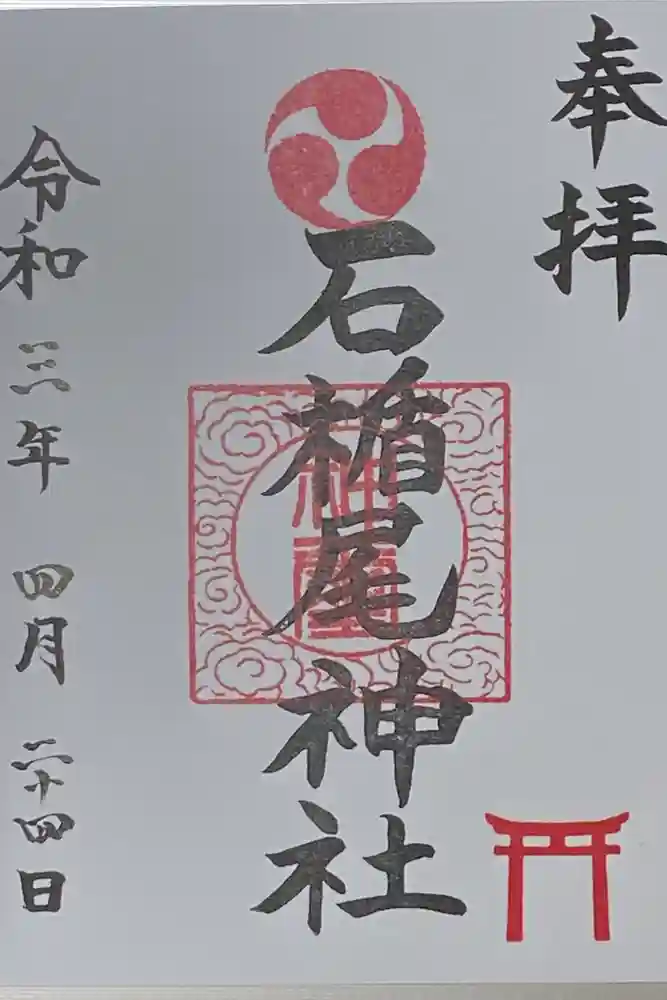 奉拝
石楯尾神社
令和三年四月二十四日